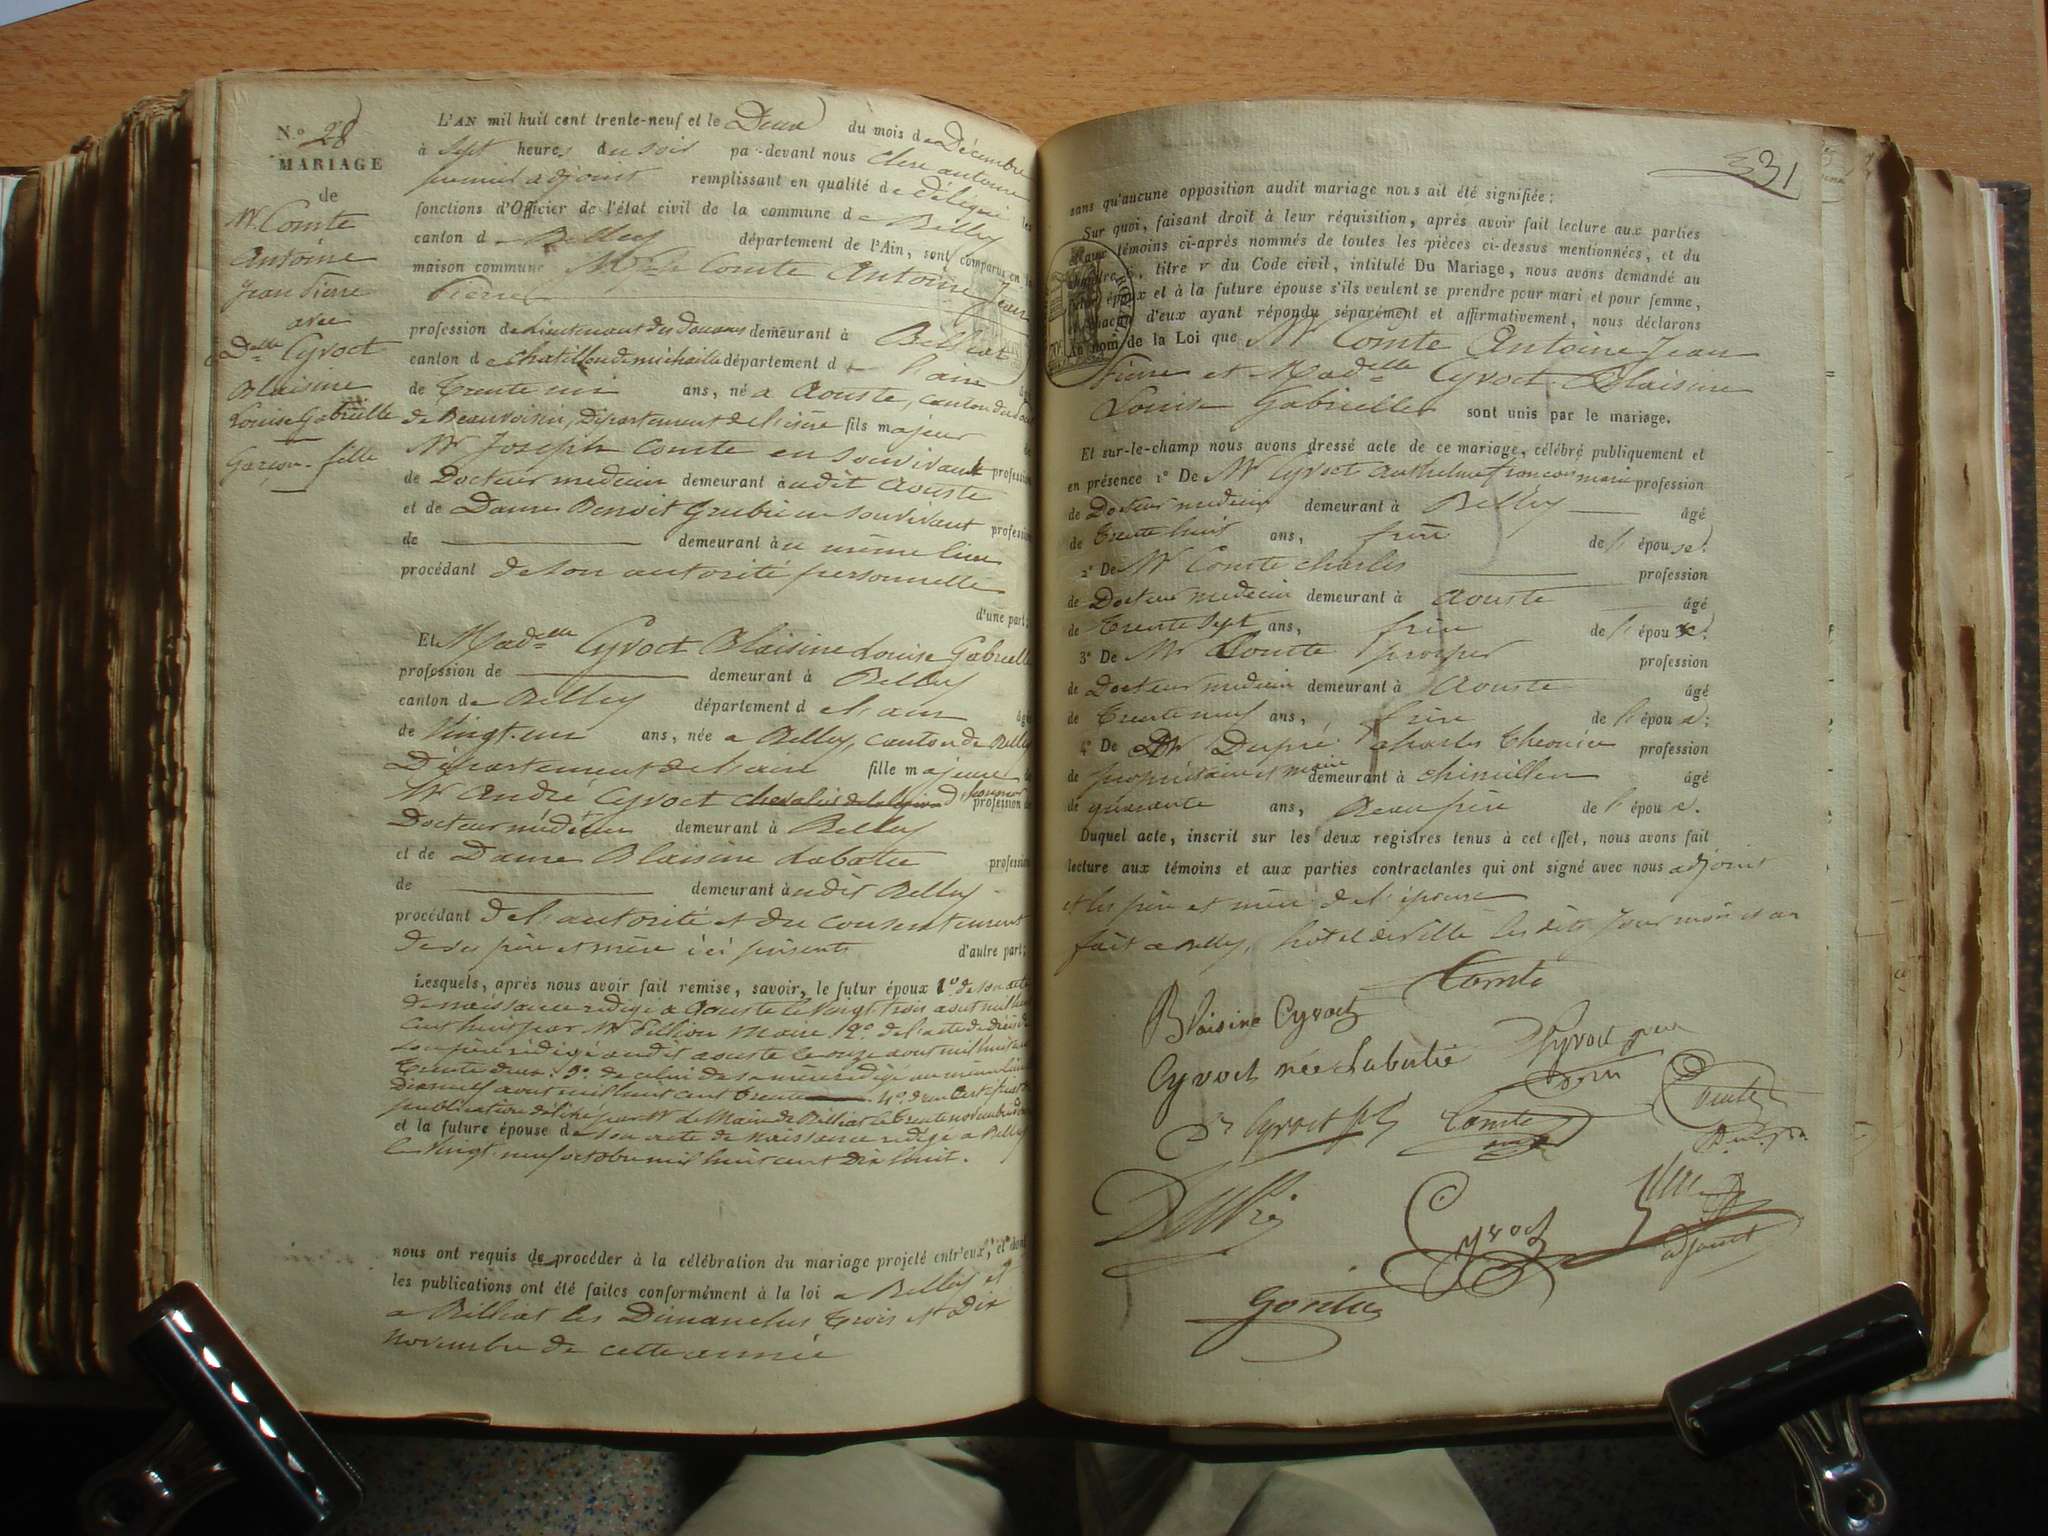 N.º 28
MARIAGE
de
Mr Comte
Antoine
Jean Pierre
avec
Delle Cyvoct
Blaisine
Louise Gabrielle
Garçon - fille
L'AN mil huit cent trente-neuf et le Deux du mois de Décembre
à Sept heures du soir par-devant nous antoine
premier adjoint remplissant en qualité de délégué les
fonctions d'Officier de l'état civil de la commune de Belley
canton de Belley département de l'Ain, sont comparus en la
maison commune Mr Comte Antoine Jean
Pierre
profession de Lieutenant des Douanes demeurant à Billiat
canton de Chatillon de michaille département de l'ain âgé
de Trente un ans, né à Aouste, canton du pont
de Beauvoisin, Département de l'isère fils majeur de
Mr Joseph Comte en Son vivant profession
de Docteur medecin demeurant audit Aouste
et de Dame Benoit Grubis en Son vivant profession
de demeurant au même lieu
procédant de Son autorité personnelle
d'une part;
Et Madelle Cyvoct Blaisine Louise Gabrielle
profession de demeurant à Belley
canton de Belley département de l'ain âgée
de Vingt-un ans, née à Belley, canton de Belley
Département de l'ain fille majeure de
Mr André Cyvoct chevalier de la légion d'honneur profession de
Docteur médecin demeurant à Belley
et de Dame Blaisine Labatie profession
de demeurant audit Belley
procédant de l'autorité et du consentement
de ses père et mère ici présents d'autre part;
Lesquels, après nous avoir fait remise, savoir, le futur époux 1º de son acte
de naissance rédigé à Aouste le Vingt-trois aout mil huit
cent huit par Mr Maire 2º de l'acte de décès de
son père rédigé audit aouste le onze aout mil huit cent
Trente deux. 3º de celui de sa mère rédigé au même lieu
Dix neuf aout mil huit cent Trente 4º d'un certificat de
publication délivré par Mr le Maire de Billiat le Trente novembre dernier
et la future épouse de son acte de naissance rédigé à Belley
le Vingt-neuf octobre mil huit cent Dix huit.
nous ont requis de procéder à la célébration du mariage projeté entr'eux, et dont
les publications ont été faites conformément à la loi à Belley et
à Billiat les Dimanches Trois et Dix
novembre de cette année
331
sans qu'aucune opposition audit mariage nous ait été signifiée;
Sur quoi, faisant droit à leur réquisition, après avoir fait lecture aux parties
et aux témoins ci-après nommés de toutes les pièces ci-dessus mentionnées, et du
chapitre 6, titre v du Code civil, intitulé Du Mariage, nous avons demandé au
futur époux et à la future épouse s'ils veulent se prendre pour mari et pour femme,
et chacun d'eux ayant répondu séparément et affirmativement, nous déclarons
au nom de la Loi que Mr Comte Antoine Jean
Pierre et Madelle Cyvoct Blaisine
Louise Gabrielle sont unis par le mariage.
Et sur-le-champ nous avons dressé acte de ce mariage, célébré publiquement et
en présence 1º De Mr Cyvoct Anthelme françois marie profession
de Docteur medecin demeurant à Belley âgé
de Trente huit ans, frère de l'épouse;
2º De Mr Comte Charles profession
de Docteur medecin demeurant à Aouste âgé
de Trente Sept ans, frère de l'époux;
3º De Mr Comte prosper profession
de Docteur medecin demeurant à Aouste âgé
de Trente neuf ans, frère de l'époux;
4º De Mr Dupré Charles profession
de propriétaire et maire demeurant à âgé
de quarante ans, Beau frère de l'épouse.
Duquel acte, inscrit sur les deux registres tenus à cet effet, nous avons fait
lecture aux témoins et aux parties contractantes qui ont signé avec nous adjoint
et les père et mère de l'épouse
fait à Belley, hôtel de ville les dits jour mois et an
Comte
Blaisine Cyvoct
Cyvoct née Labatie Cyvoct père
Dr Cyvoct fils Comte Comte
Dupré Cyvoct adjoint